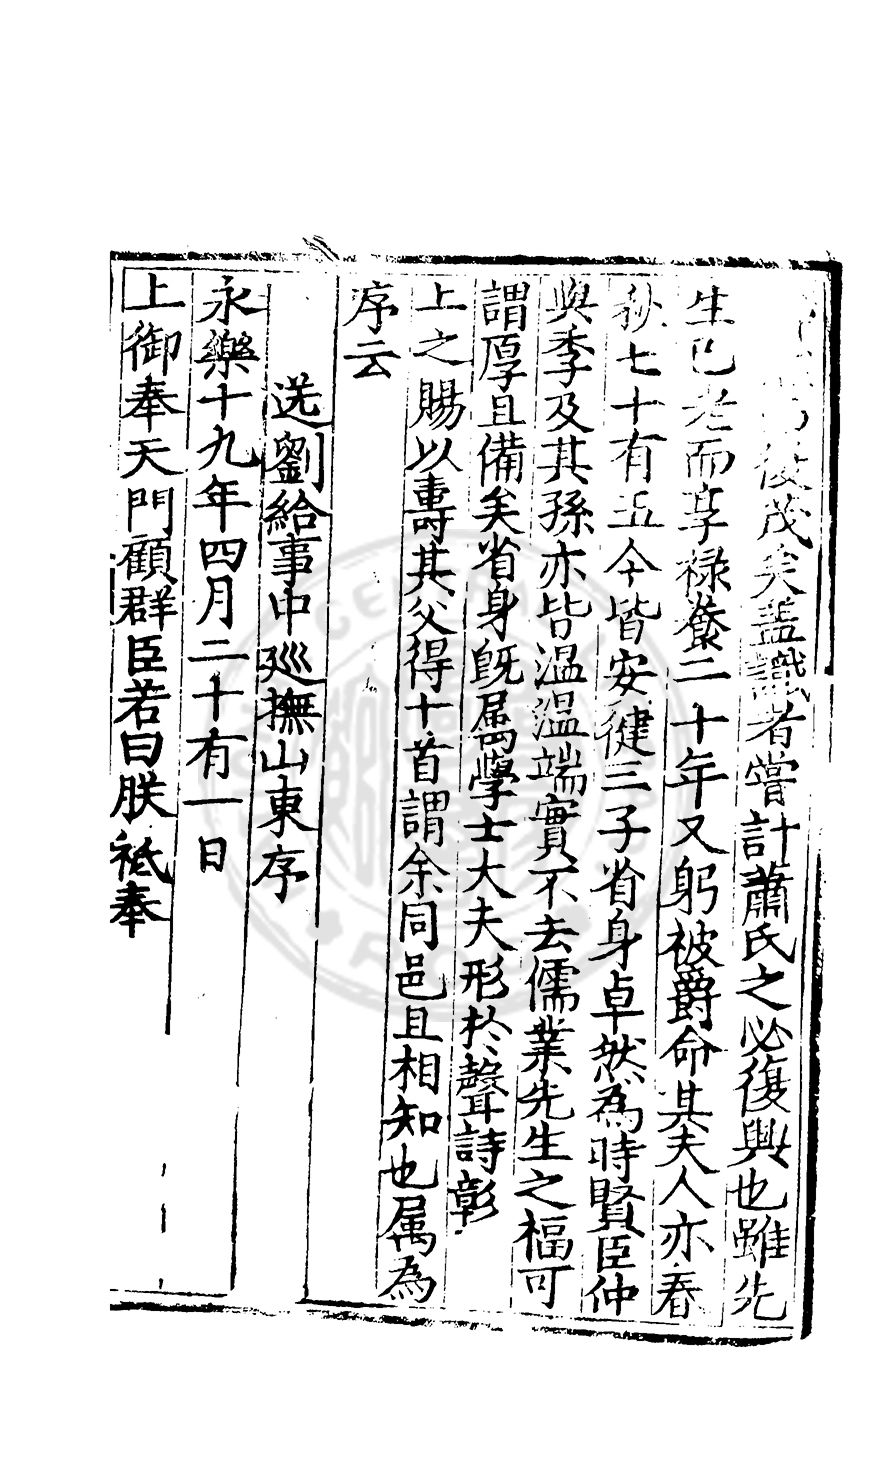 後茂矣蓋識者嘗計蕭氏之必復興也雖先
生已老而享祿養二十年又躬被爵命其夫人亦春
秋七十有五今皆安健三子省身卓然為時賢臣仲
與季及其孫亦皆温温端實不去儒業先生之福可
謂厚且備矣省身旣属學士大夫形於聲詩彰
上之賜以壽其父得十首謂余同邑且相知也属為
序云
送劉給事中廵撫山東序
永樂十九年四月二十有一日
上御奉天門顧群臣若曰朕祗奉